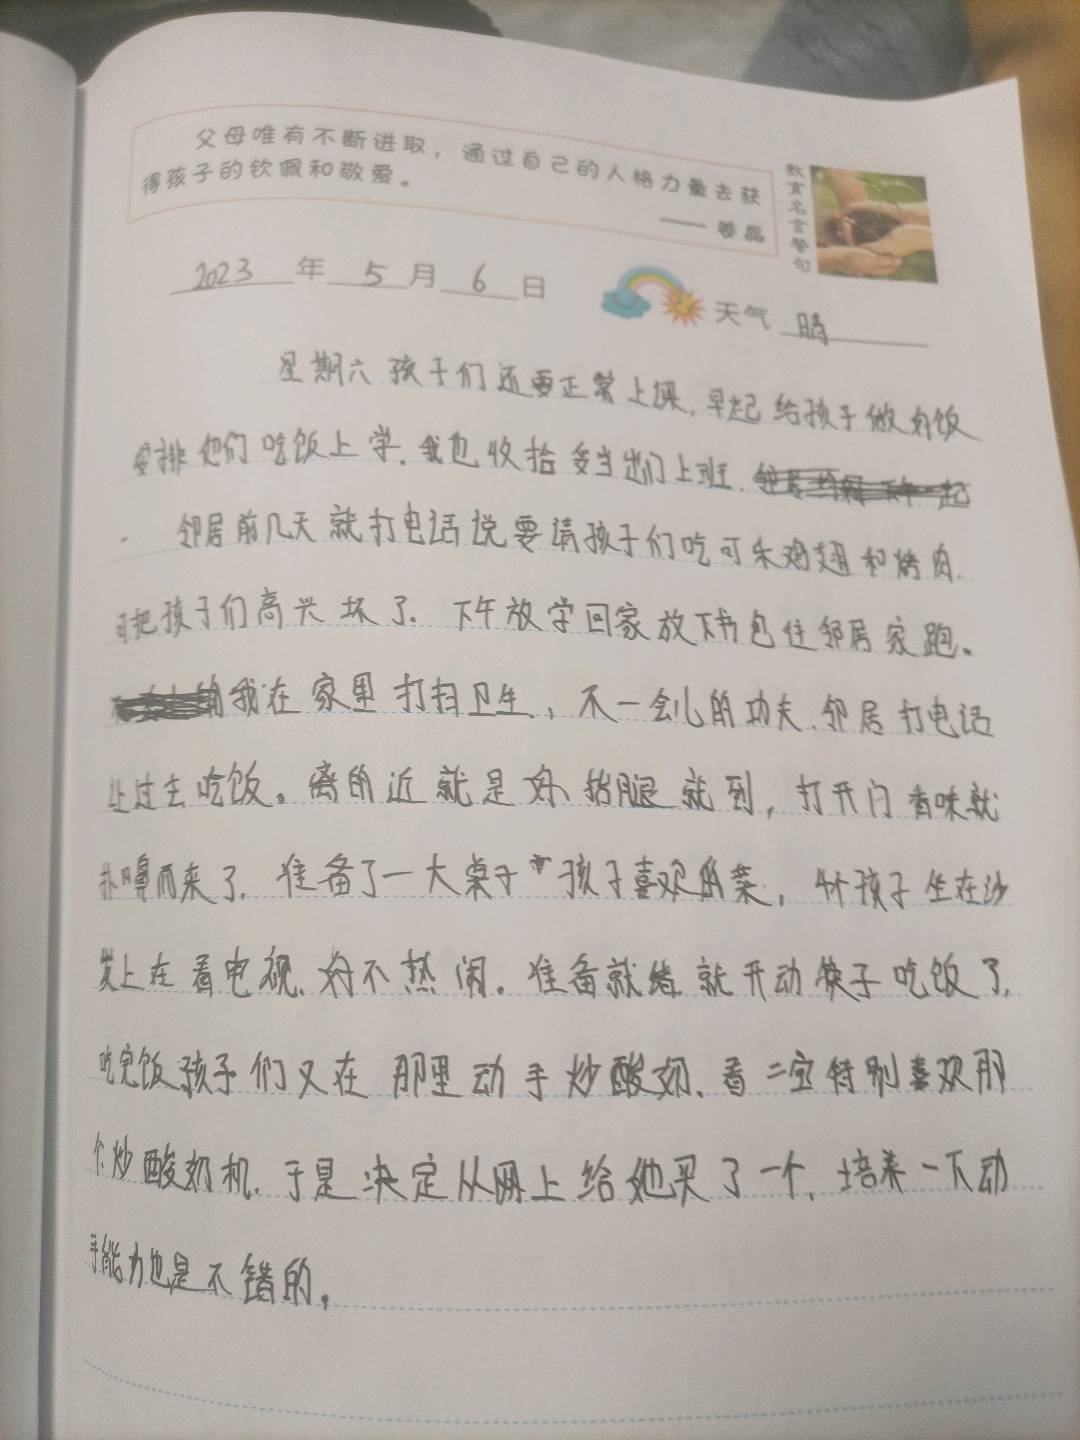 父母唯有不断进取，通过自己的人格力量去获
得孩子的钦佩和敬爱。
—— 姜晶
教育名言警句
2023年5月6日
天气 晴
星期六孩子们还要正常上课，早起给孩子做好饭
安排他们吃饭上学。我也收拾妥当出门上班。
邻居前几天就打电话说要请孩子们吃可乐鸡翅和烤肉，
可把孩子们高兴坏了。下午放学回家放下书包往邻居家跑。
我在家里打扫卫生，不一会儿的功夫，邻居打电话
让过去吃饭。离的近就是好，抬腿就到，打开门香味就
扑鼻而来了，准备了一大桌子孩子喜欢的菜，4个孩子坐在沙
发上在看电视，好不热闹。准备就绪就开动筷子吃饭了，
吃完饭孩子们又在那里动手炒酸奶，看二宝特别喜欢那
个炒酸奶机，于是决定从网上给她买了一个，培养一下动
手能力也是不错的。